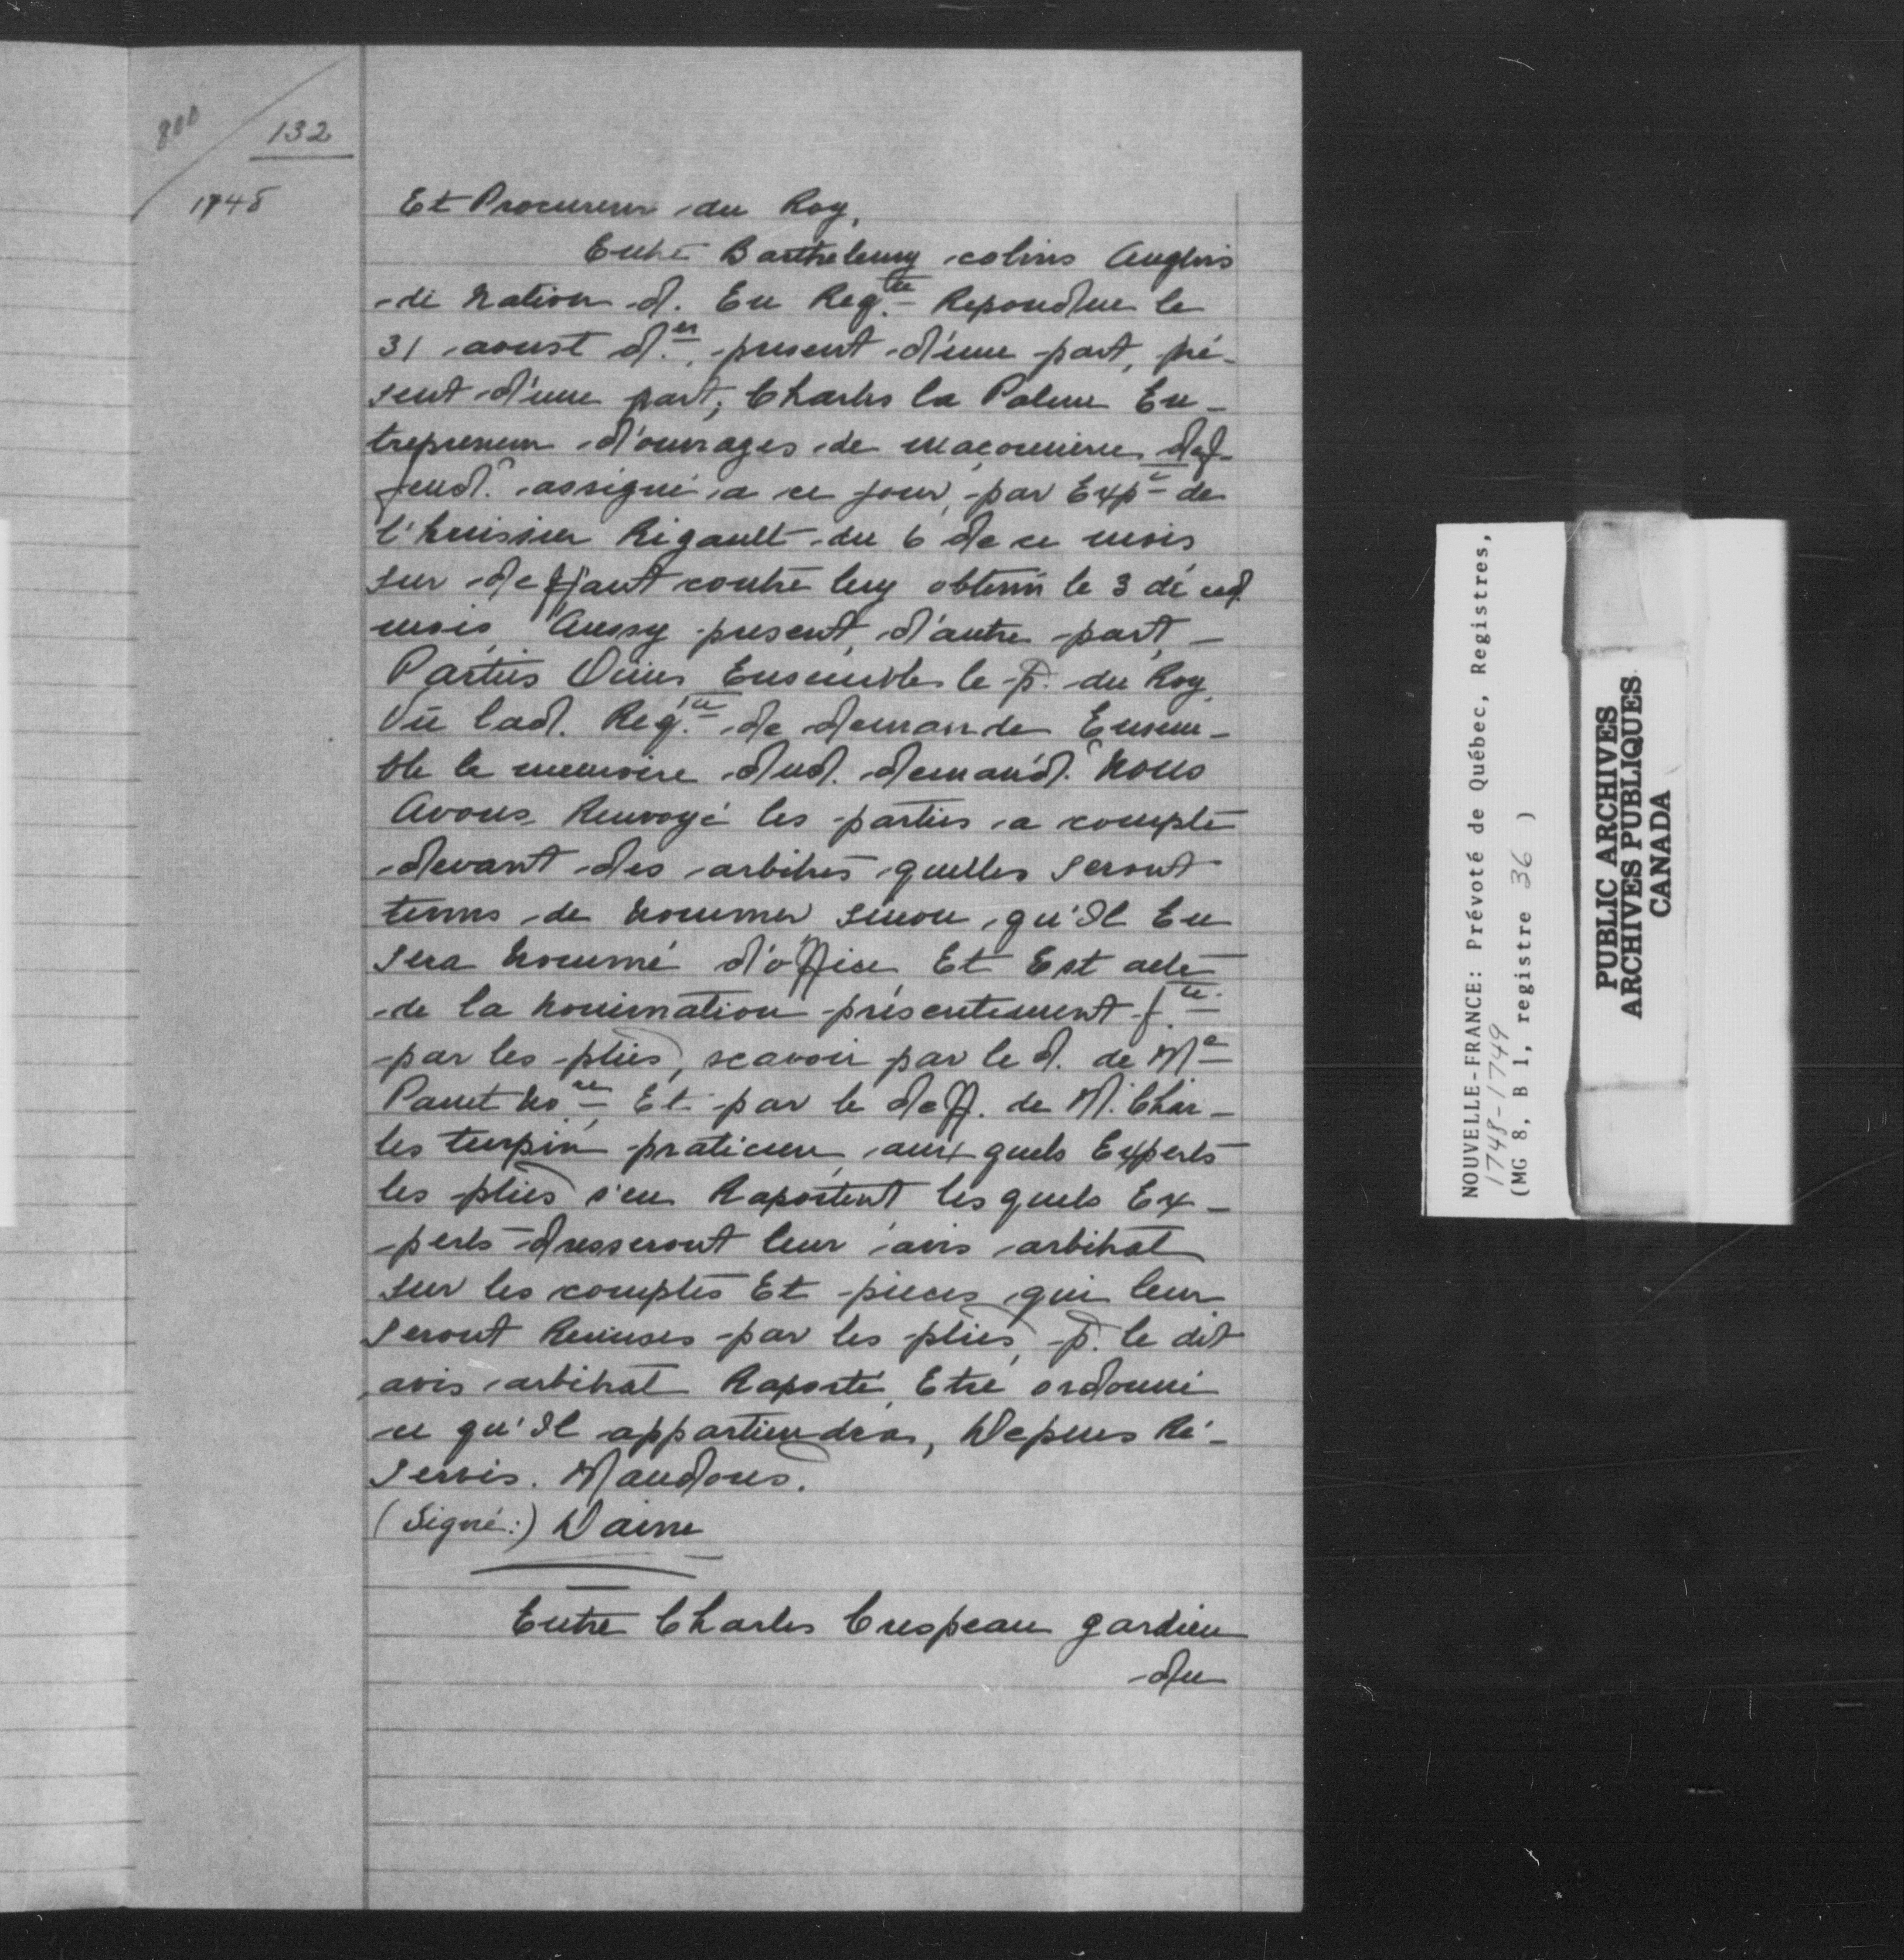 800
132
1748
Et Procureur du Roy,
Entre Barthelemy colins Anglois
de Nation d. En Reqte Repondue le
31 aoust der, present d'une part, pré-
sent d'une part; Charles la Palme En-
trepreneur d'ouvrages de maçonnerie def-
fend. assigné a ce jour, par Expt de
l'huissier Rigault du 6 de ce mois
sur deffaut contre luy obtenu le 3 de ced.
mois, Aussy present, d'autre part, -
Parties Ouies Ensemble le p. du Roy,
Vû lad. Reqte de demande Ensem-
ble le memoire dud. demand. Nous
Avons Renvoyé les parties a compte
devant des arbitres quelles seront
tenus de Nommer sinon, qu'Il En
sera Nommé d'office, Et Est acte
de la Nomination présentement f.te
par les pties, scavoir par le d. de Me
Panet Nore Et par le deff. de M. Char-
les turpin praticien, aux quels Experts
les pties s'en Raportent les quels Ex-
perts dresseront leur avis arbitral
sur les comptes Et pieces qui leur
seront Remises par les pties, p. le dit
avis arbitral Raporté, Etre ordonné
ce qu'Il appartiendra, Depens Ré-
servés. Mandons.
(Signé:) Daine
Entre Charles Crespeau gardien
du
NOUVELLE-FRANCE: Prévoté de Québec, Registres,
1748-1749
(MG 8, B 1, registre 36 )
PUBLIC ARCHIVES
ARCHIVES PUBLIQUES
CANADA